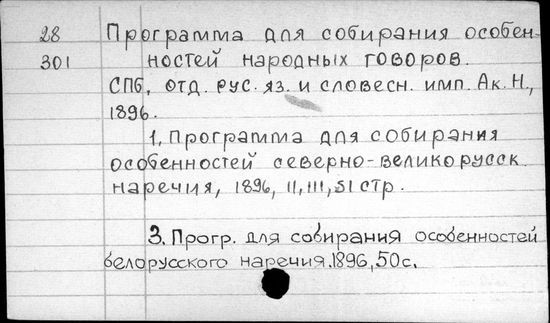 28 Программа для собирания особен-
301 ностей народных говоров.
СПб, отд. рус. яз. и словесн. имп. Ак. Н.,
1896.
1. Программа для собирания
особенностей северно-великорусск.
наречия, 1896, II, III, 51 стр.
3. Прогр. для собирания особенностей
белорусского наречия. 1896, 50 с.